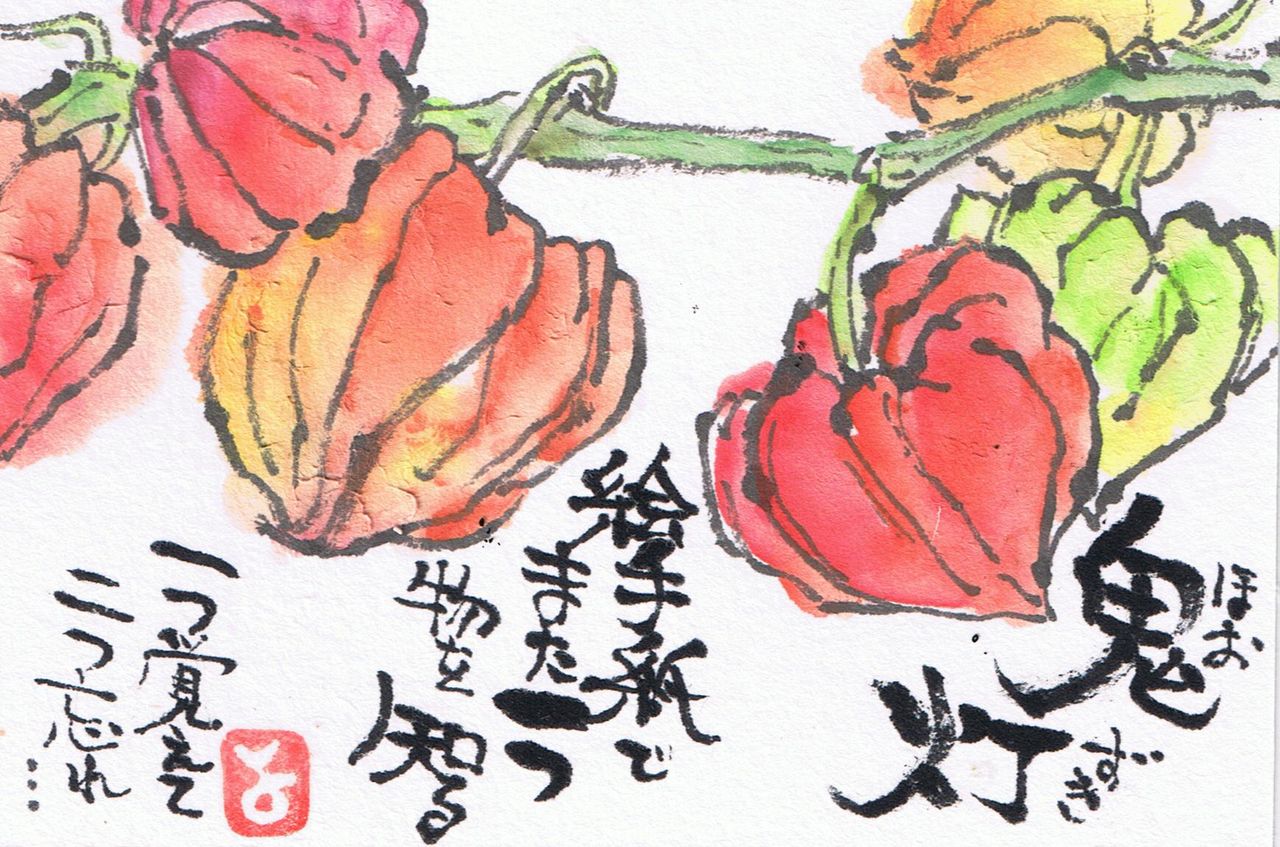 鬼灯
ほおずき
絵手紙で
また一つ
物を知る
一つ覚えて
二つ忘れ…
よ